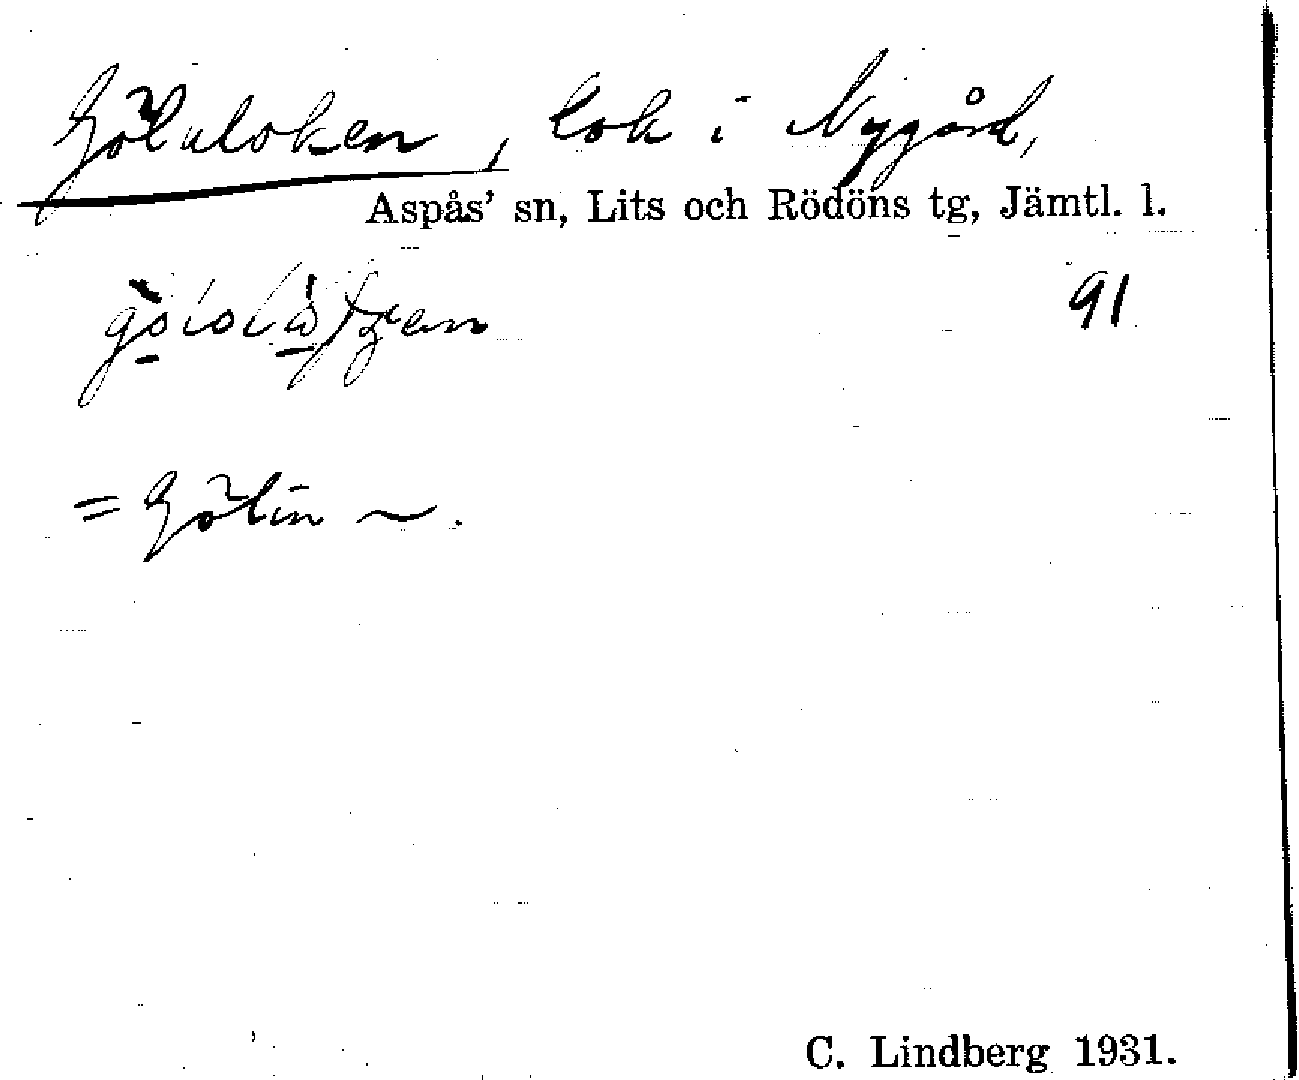 Gölnloken, lok i Nygård,
Aspås' sn, Lits och Rödöns tg, Jämtl. l.
91
= Gölin ~.
C. Lindberg 1931.